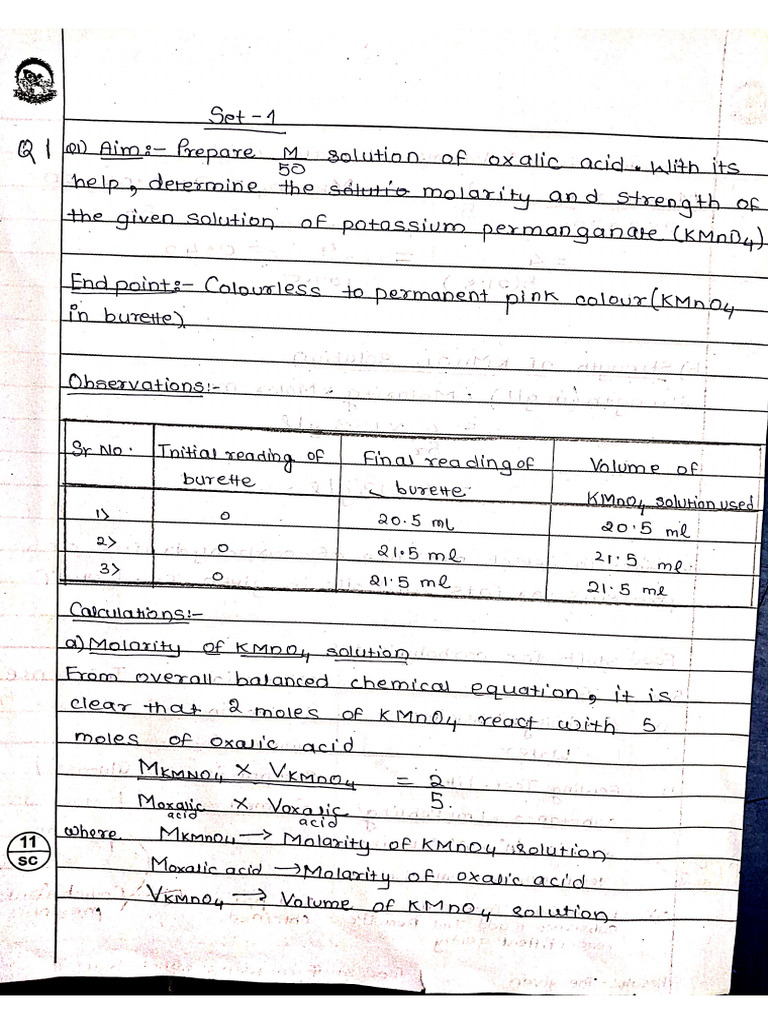 Set-1
Q1 Q1) Aim:- Prepare M/50 solution of oxalic acid. With its
help, determine the solutio molarity and strength of
the given solution of potassium permanganate (KMnO4)
End point:- Colourless to permanent pink colour (KMnO4
in burette)
Observations:-
Sr No. Initial reading of burette Final reading of burette Volume of KMnO4 solution used
1) 0 20.5 ml 20.5 ml
2) 0 21.5 ml 21.5 ml.
3) 0 21.5 ml 21.5 ml
Calculations:-
a) Molarity of KMnO4 solution
From overall balanced chemical equation, it is
clear that 2 moles of KMnO4 react with 5
moles of oxalic acid
MKMNO4 × VKMnO4 = 2
Moxalic acid × Voxalic acid 5.
where MKMnO4 → Molarity of KMnO4 solution
Moxalic acid → Molarity of oxalic acid
VKMnO4 → Volume of KMnO4 solution
11
SC